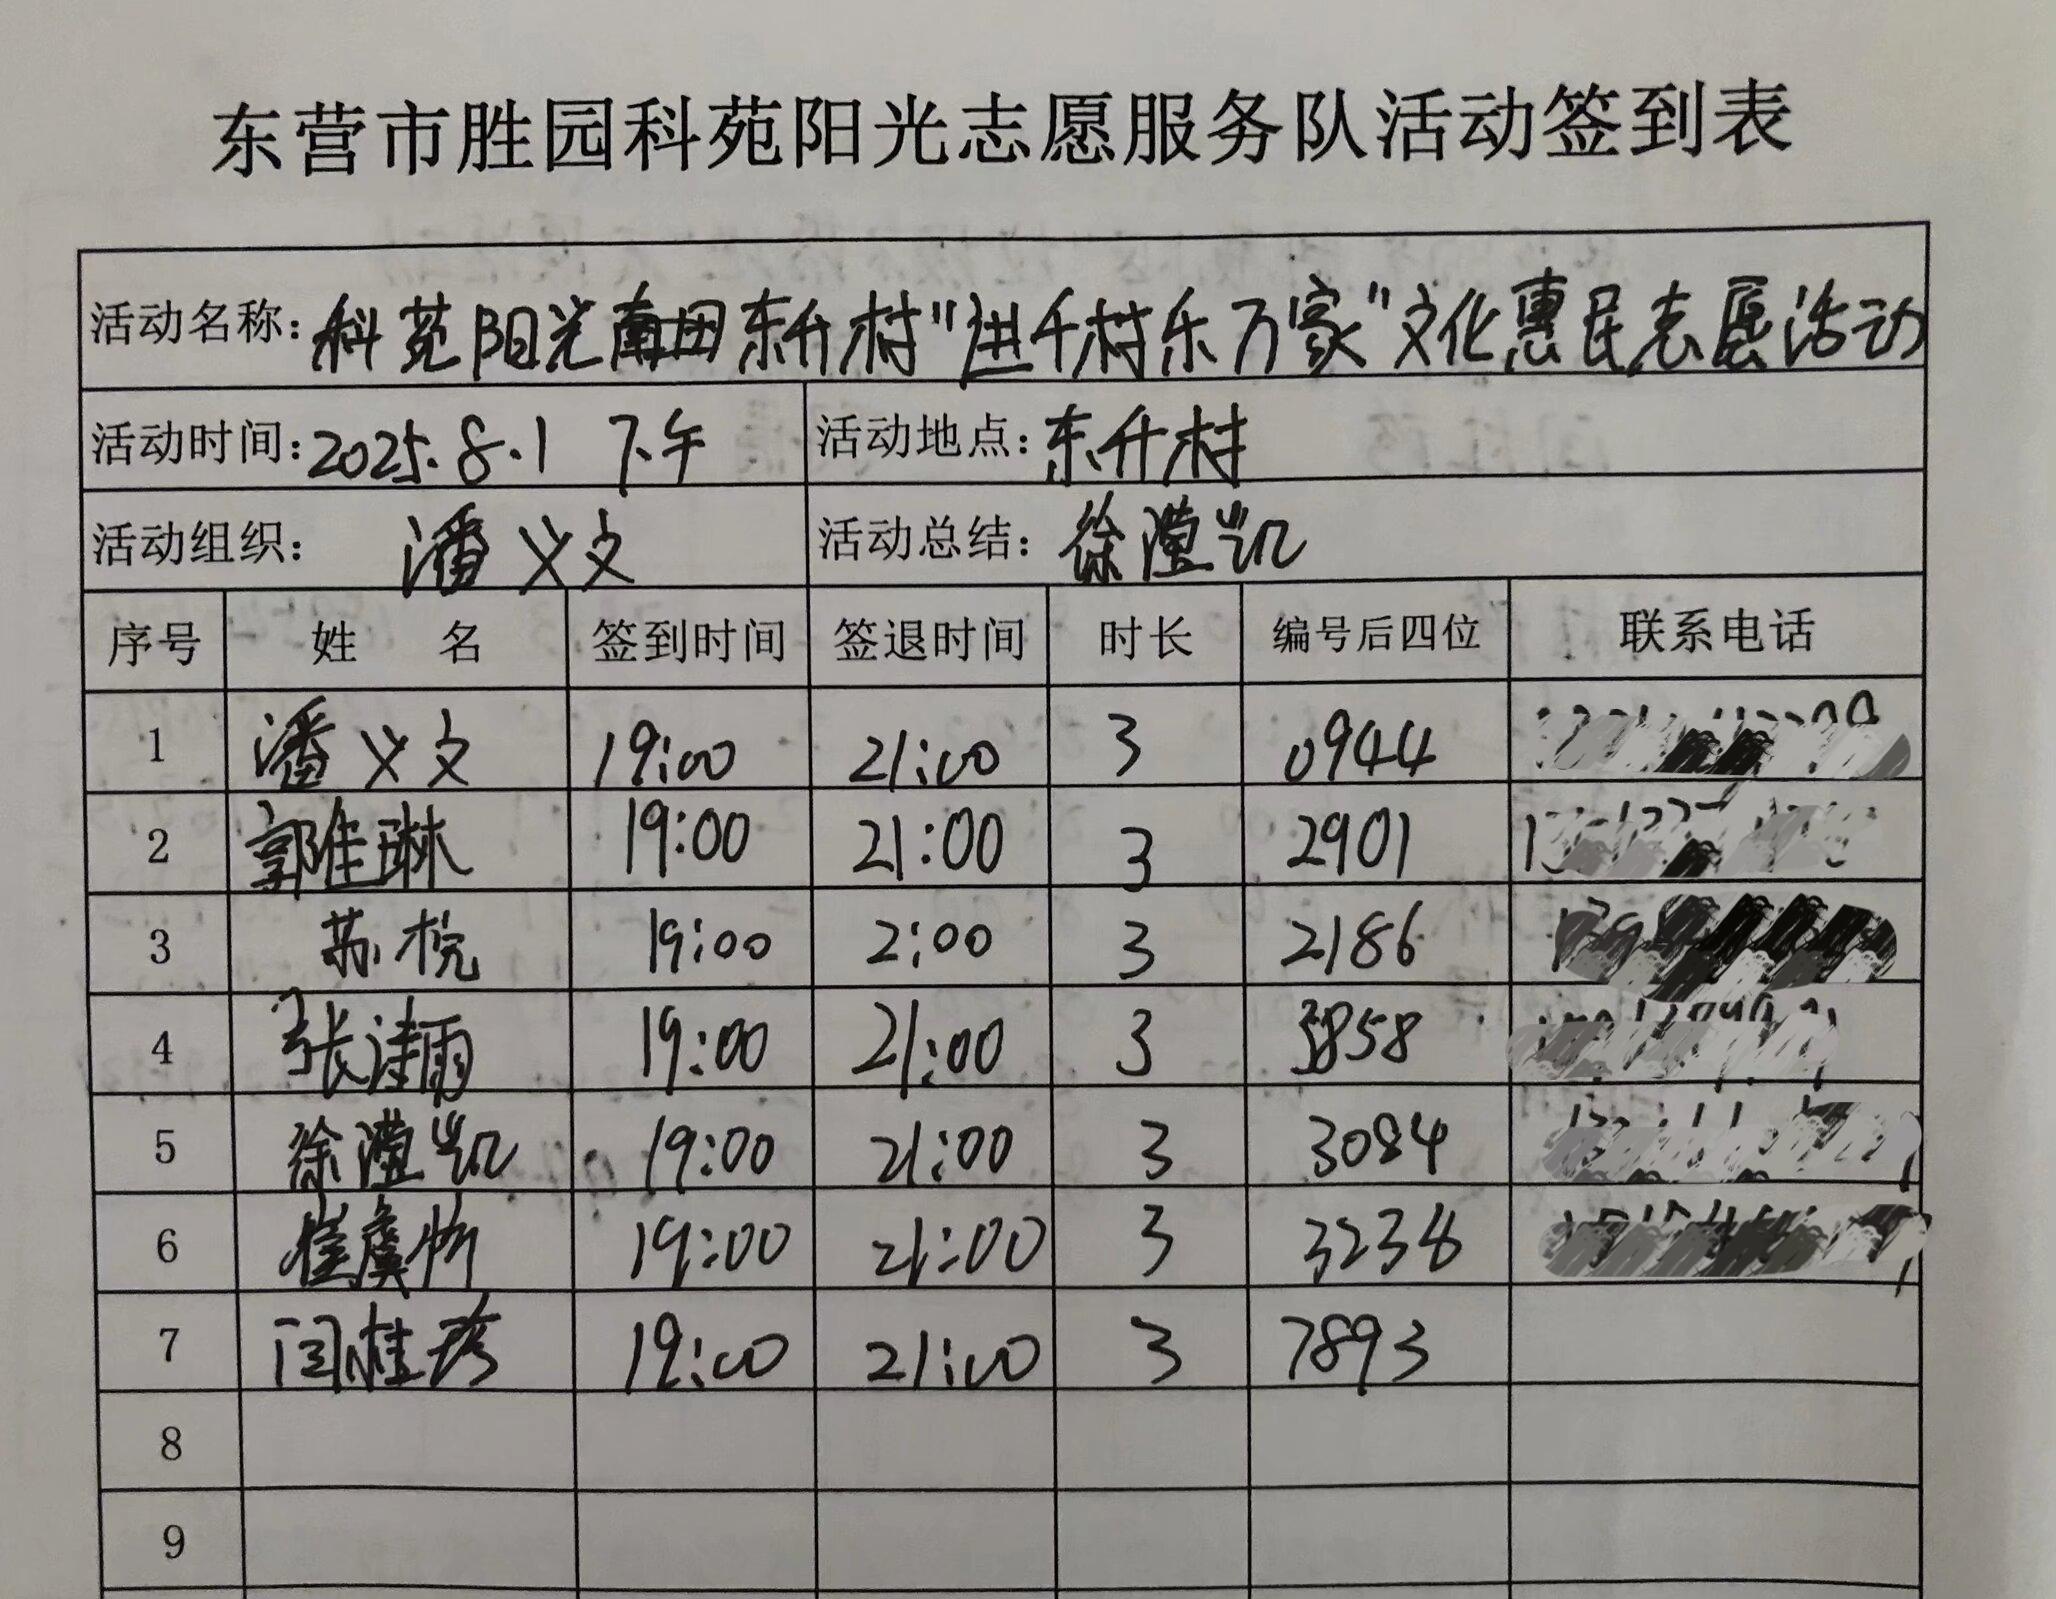 东营市胜园科苑阳光志愿服务队活动签到表
活动名称: 科苑阳光南田东升村"进千村乐万家"文化惠民志愿活动
活动时间: 2025.8.1 下午 活动地点: 东升村
活动组织: 潘义文 活动总结: 徐滢凯
序号 姓 名 签到时间 签退时间 时长 编号后四位 联系电话
1 潘义文 19:00 21:00 3 0944
2 郭佳琳 19:00 21:00 3 2901
3 苏棁 19:00 2:00 3 2186
4 张诗雨 19:00 21:00 3 3858
5 徐滢凯 19:00 21:00 3 3084
6 崔虞忻 19:00 21:00 3 3238
7 闫桂珍 19:00 21:00 3 7893
8
9